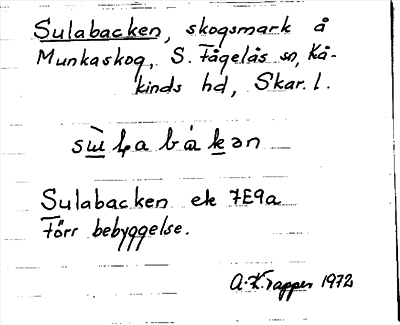 Sulabacken, skogsmark å
Munkaskog, S. Fågelås sn, Kå-
kinds hd, Skar. l.
Sulabacken ek 7E9a
Förr bebyggelse.
A.K. Trapper 1972